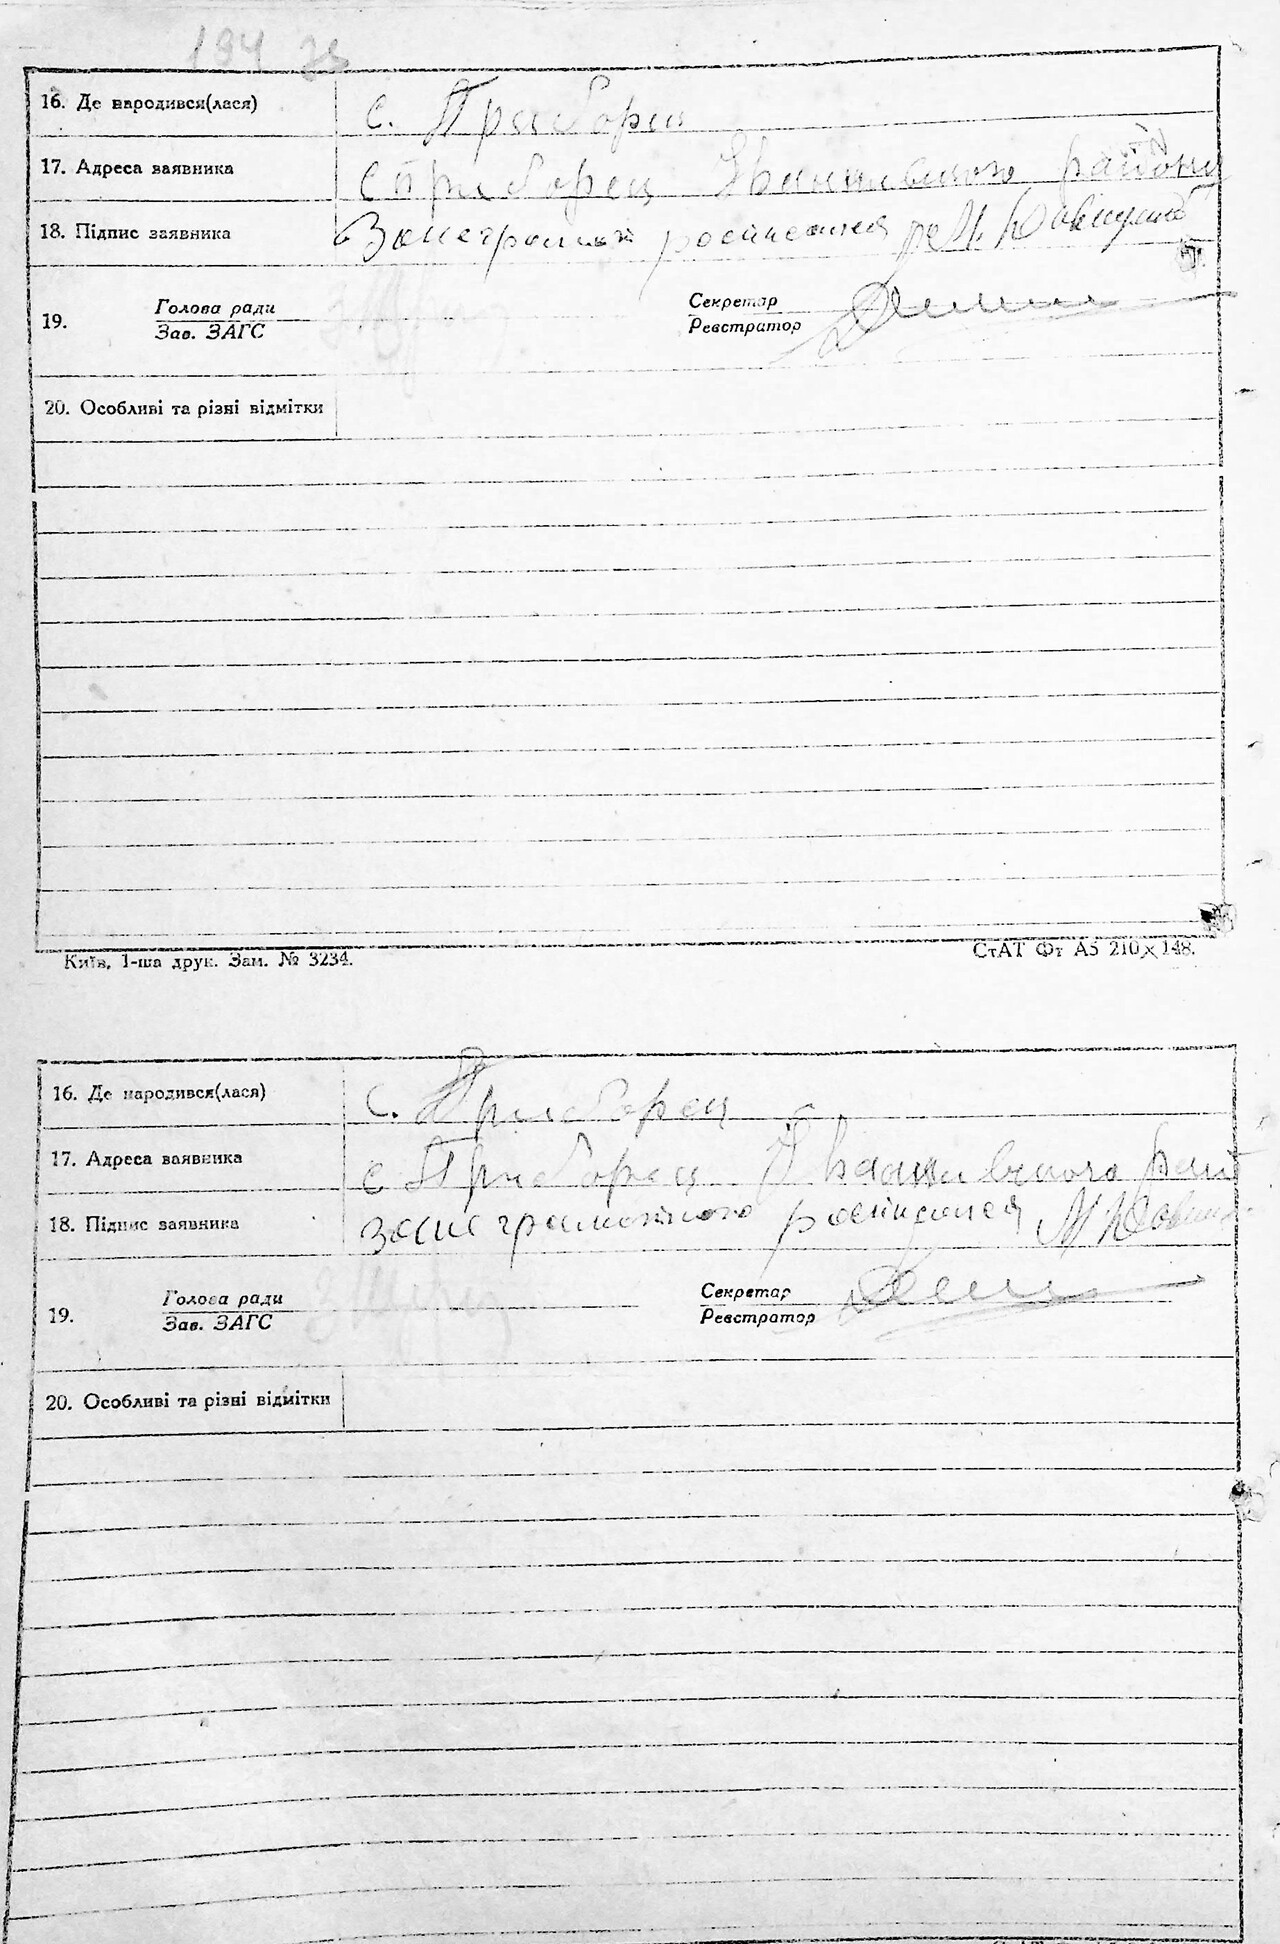 194
16. Де народився(лася) с. Приборец
17. Адреса заявника с Приборец Іванківского району
18. Підпис заявника За неграмотн росписался
19. Голова ради Секретар
Зав. ЗАГС Реєстратор
20. Особливі та різні відмітки
Київ, 1-ша друк. Зам. № 3234. СтАТ Фт А5 210×148.
16. Де народився(лася) с. Приборец
17. Адреса заявника с Приборец Іванківского рай
18. Підпис заявника за неграмотного росписался
19. Голова ради Секретар
Зав. ЗАГС Реєстратор
20. Особливі та різні відмітки